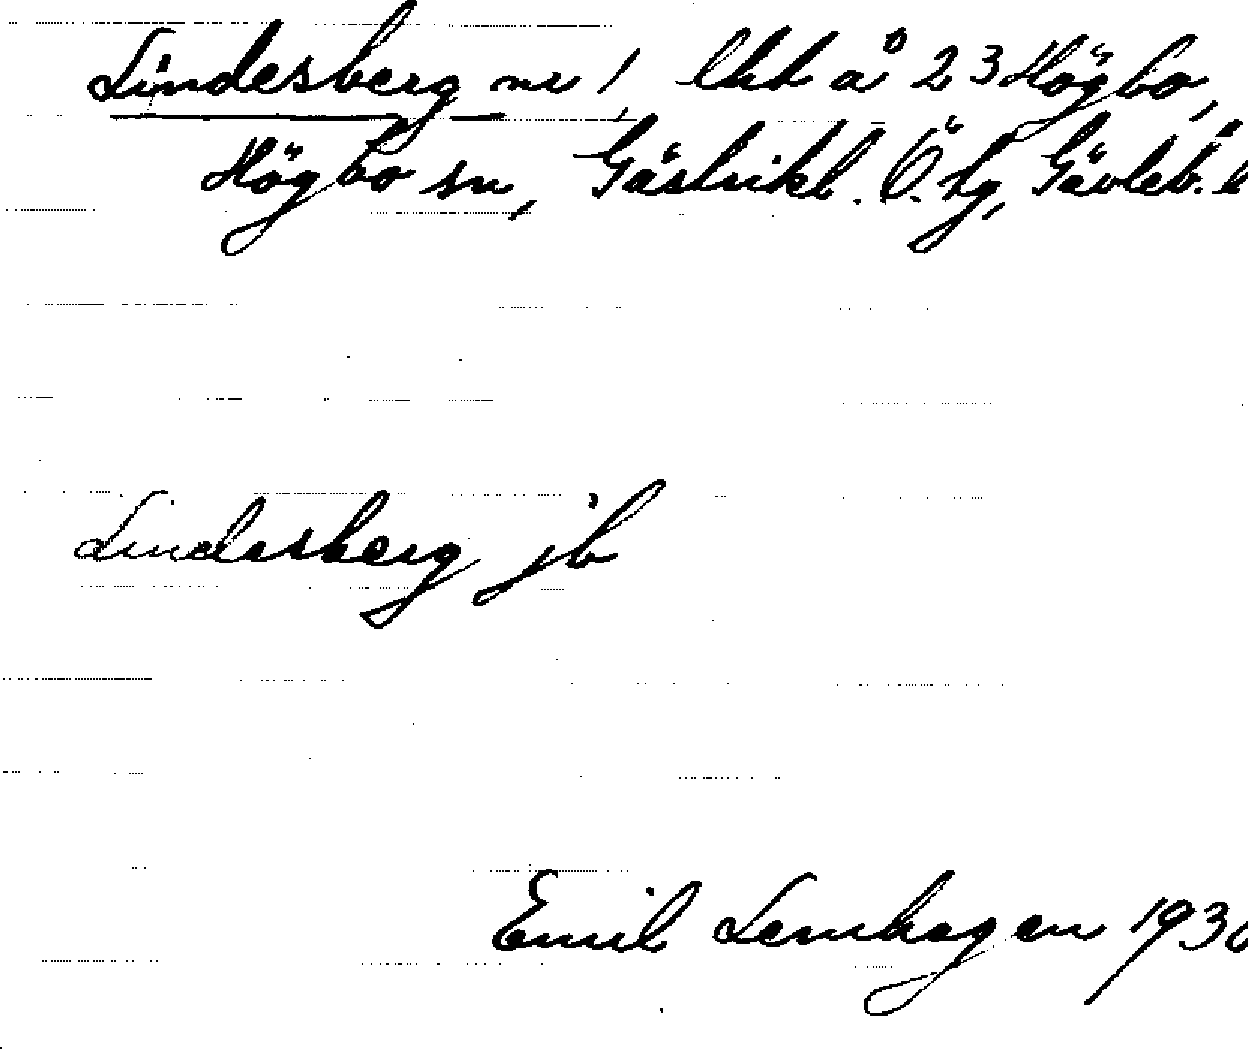 Lindesberg nr 1, lht å 23 Högbo,
Högbo sn, Gästrikl. Ö. tg, Gävleb. l
Lindesberg jb
Emil Lemhagen 1930